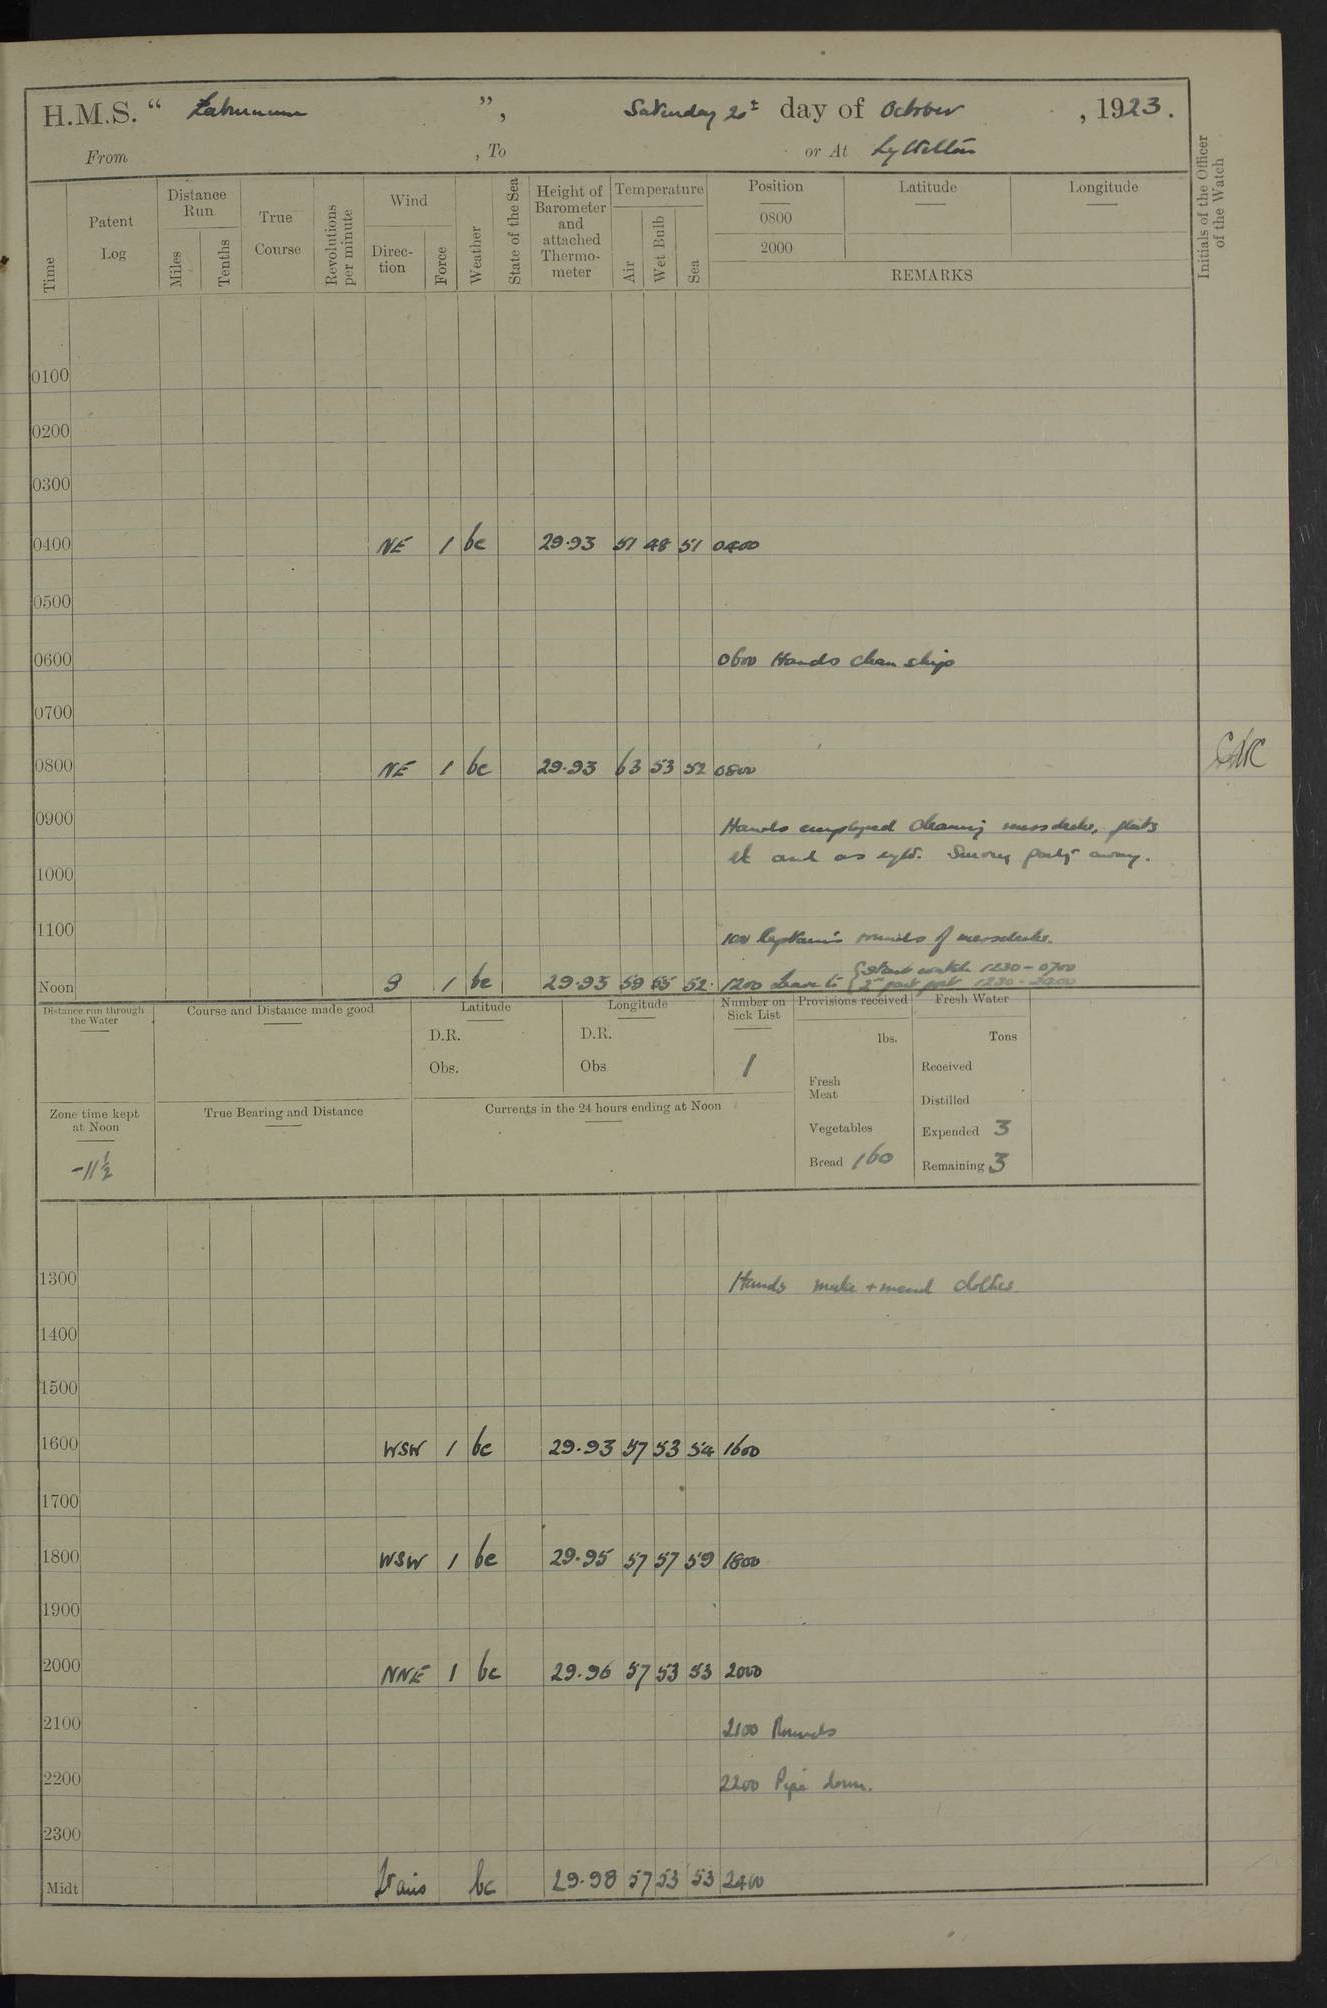 H.M.S. “ Laburnum ”, Saturday 20th day of October , 1923.
From , To or At Lyttelton
Time
Patent Log
Distance Run
Miles
Tenths
True Course
Revolutions per minute
Wind
Direc-tion
Force
Weather
State of the Sea
Height of Barometer and attached Thermo-meter
Temperature
Air
Wet Bulb
Sea
Position
0800
2000
Latitude
Longitude
REMARKS
Initials of the Officer of the Watch
0100
0200
0300
0400 NE 1 bc 29.93 51 48 51 0400
0500
0600 0600 Hands clean ship
0700
0800 NE 1 bc 29.93 63 53 52 0800
0900 Hands employed cleaning messdecks, flats
etc and as reqd. Survey party away.
1000
1100 Captain's rounds of messdecks.
Noon 1 bc 29.93 59 55 52 1200 Leave to { Starb watch 1230-0700
{ 2nd part port 1230-2200
Distance run through the Water
Course and Distance made good
Latitude
D.R.
Obs.
Longitude
D.R.
Obs
Number on Sick List
1
Provisions received
lbs.
Fresh Meat
Vegetables
Bread 160
Fresh Water
Tons
Received
Distilled
Expended 3
Remaining 3
Zone time kept at Noon
-11½
True Bearing and Distance
Currents in the 24 hours ending at Noon
1300 Hands make + mend clothes
1400
1500
1600 WSW 1 bc 29.93 57 53 54 1600
1700
1800 WSW 1 bc 29.95 57 57 59 1800
1900
2000 NNE 1 bc 29.96 57 53 53 2000
2100 2100 Rounds
2200 2200 Pipe down.
2300
Midt Lt airs bc 29.98 57 53 53 2400